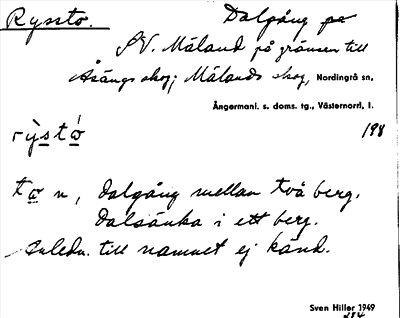 Ryssto. Dalgång på
SV. Måland på gränsen till
Åsängs skog; Målands skog, Nordingrå sn,
Ångermanl. s. doms. tg., Västernorrl. l.
198
rỳstò
tø n, dalgång mellan två berg.
Dalsänka i ett berg.
Anledn. till namnet ej känd.
Sven Hiller 1949